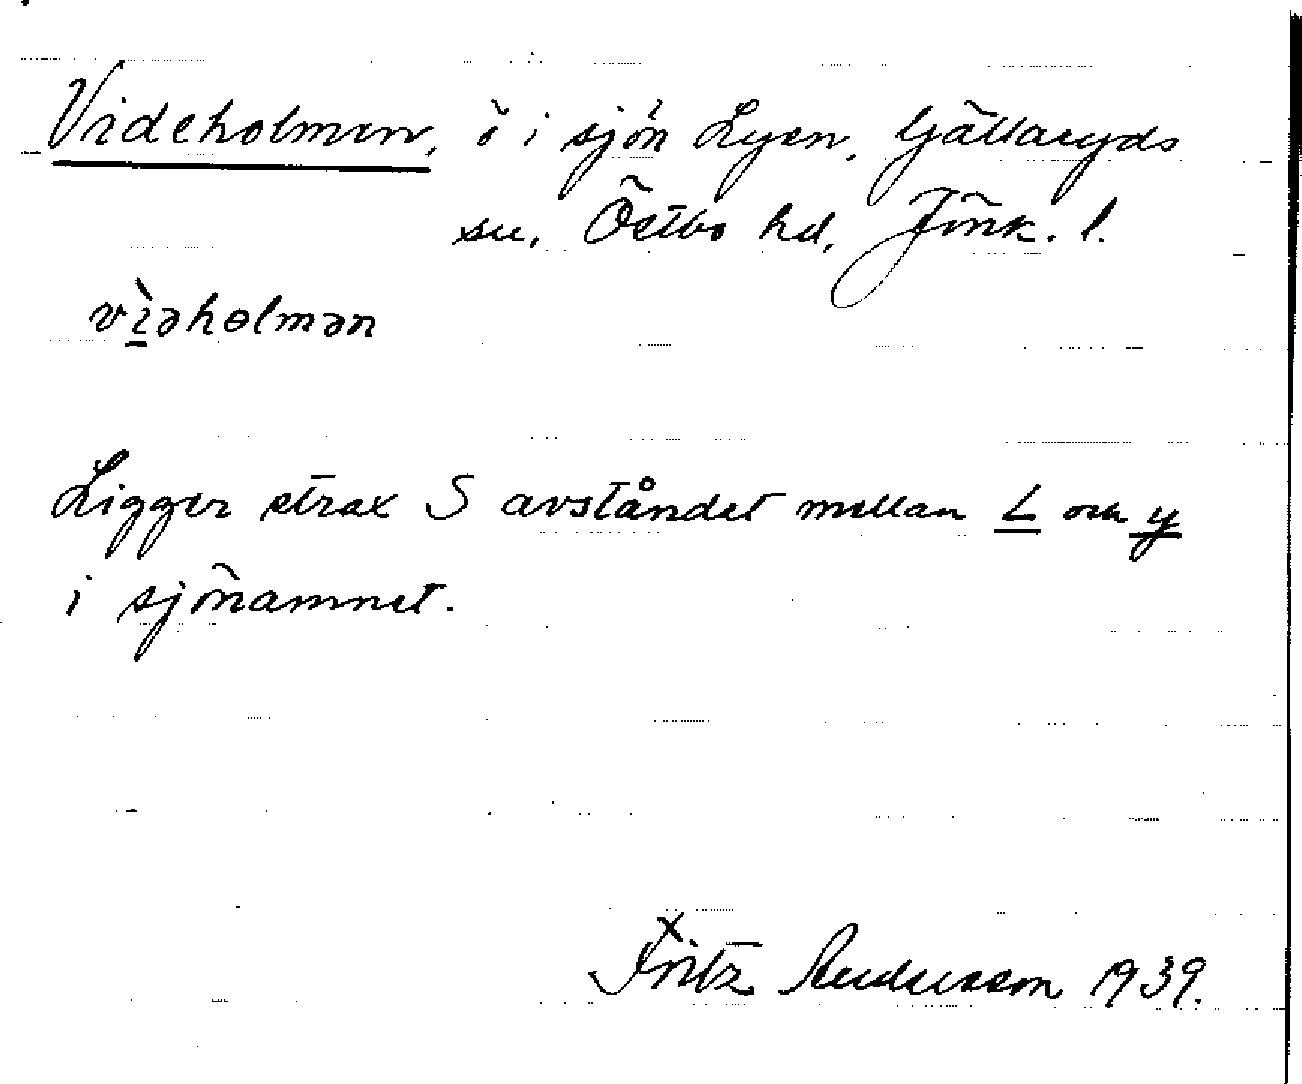 Videholmen, ö i sjön Lyen, Gällaryds
sn, Östbo hd, Jönk. l.
vìəhɵlmən
Ligger strax S avståndet mellan L och y
i sjönamnet.
Fritz Andersson 1939.